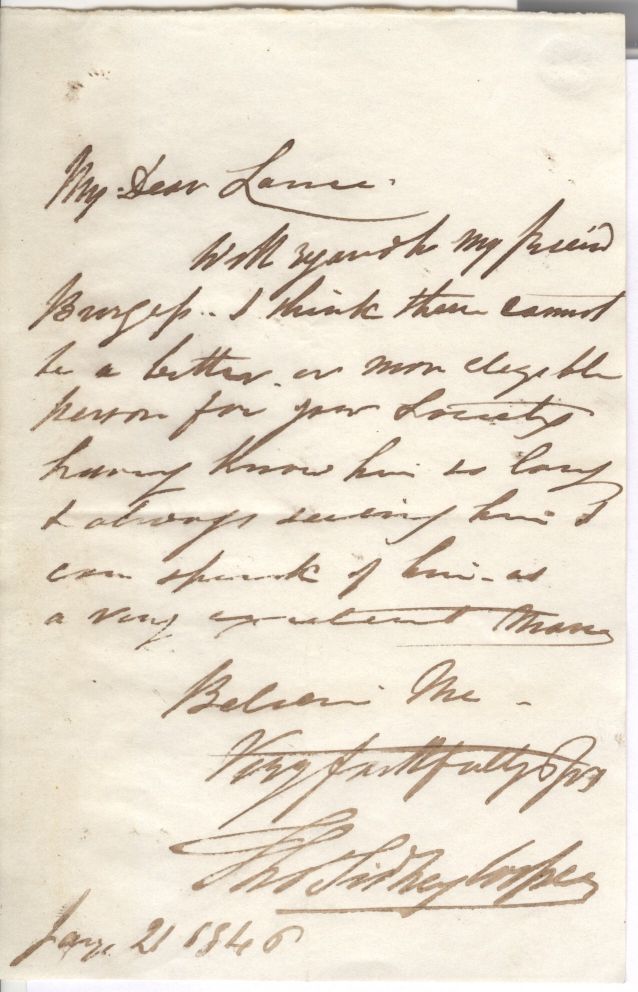 My Dear Lance.
With regards to my friend
Burgess.. I think there cannot
be a better or more elegible
person for your Society
having know him so long
& always seeing him I
can speak of him as
a very excellent
Believe Me -
Very faithfully Yrs
Thos Sidney Cooper
Jany. 21 1846